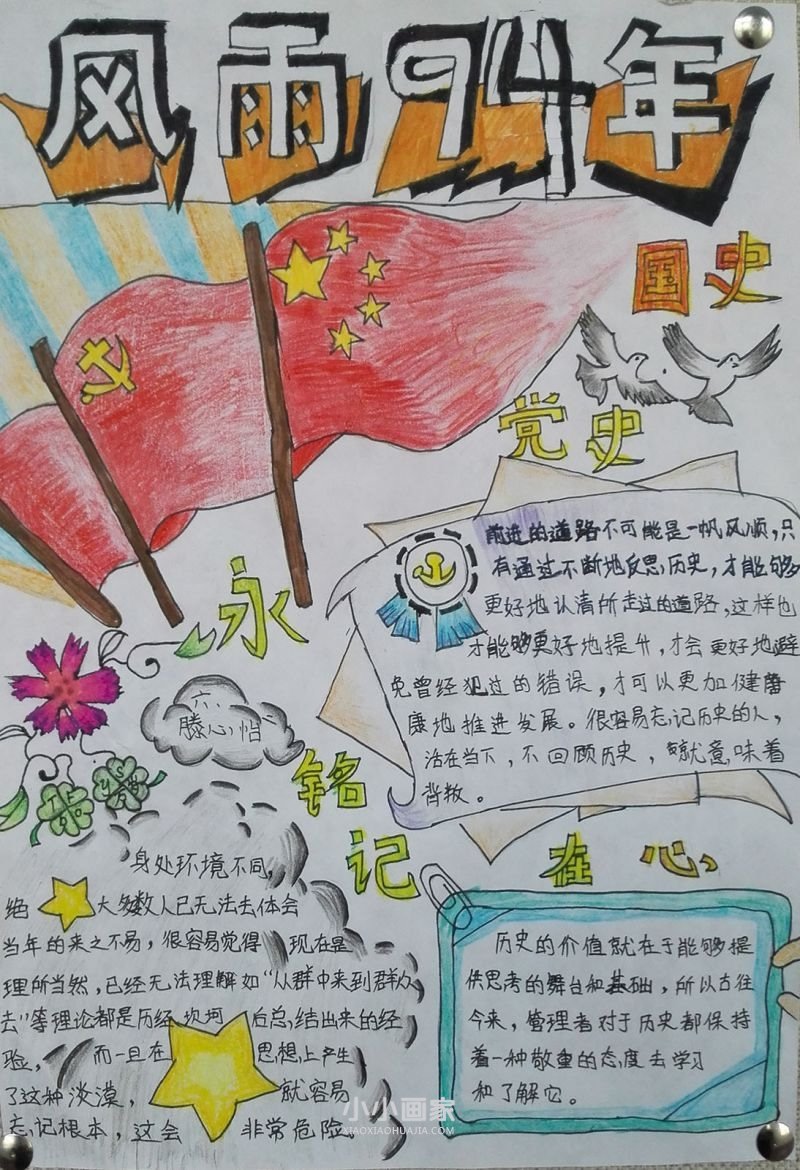 风雨94年
国史
党史
前进的道路不可能是一帆风顺，只
有通过不断地反思历史，才能够
更好地认清所走过的道路，这样也
才能够更好地提升，才会更好地避
免曾经犯过的错误，才可以更加健
康地推进发展。很容易忘记历史的人，
活在当下，不回顾历史，就意味着
背叛。
永
铭
记
在心
六.一
滕心怡
身处环境不同，
绝大多数人已无法去体会
当年的来之不易，很容易觉得现在是
理所当然，已经无法理解如“从群中来到群众
去”等理论都是历经坎坷后总结出来的经
验，而一旦在思想上产生
了这种淡漠，就容易
忘记根本，这会非常危险。
历史的价值就在于能够提
供思考的舞台和基础，所以古往
今来，管理者对于历史都保持
着一种敬重的态度去学习
和了解它。
小小画家
XIAOXIAOHUAJIA.COM